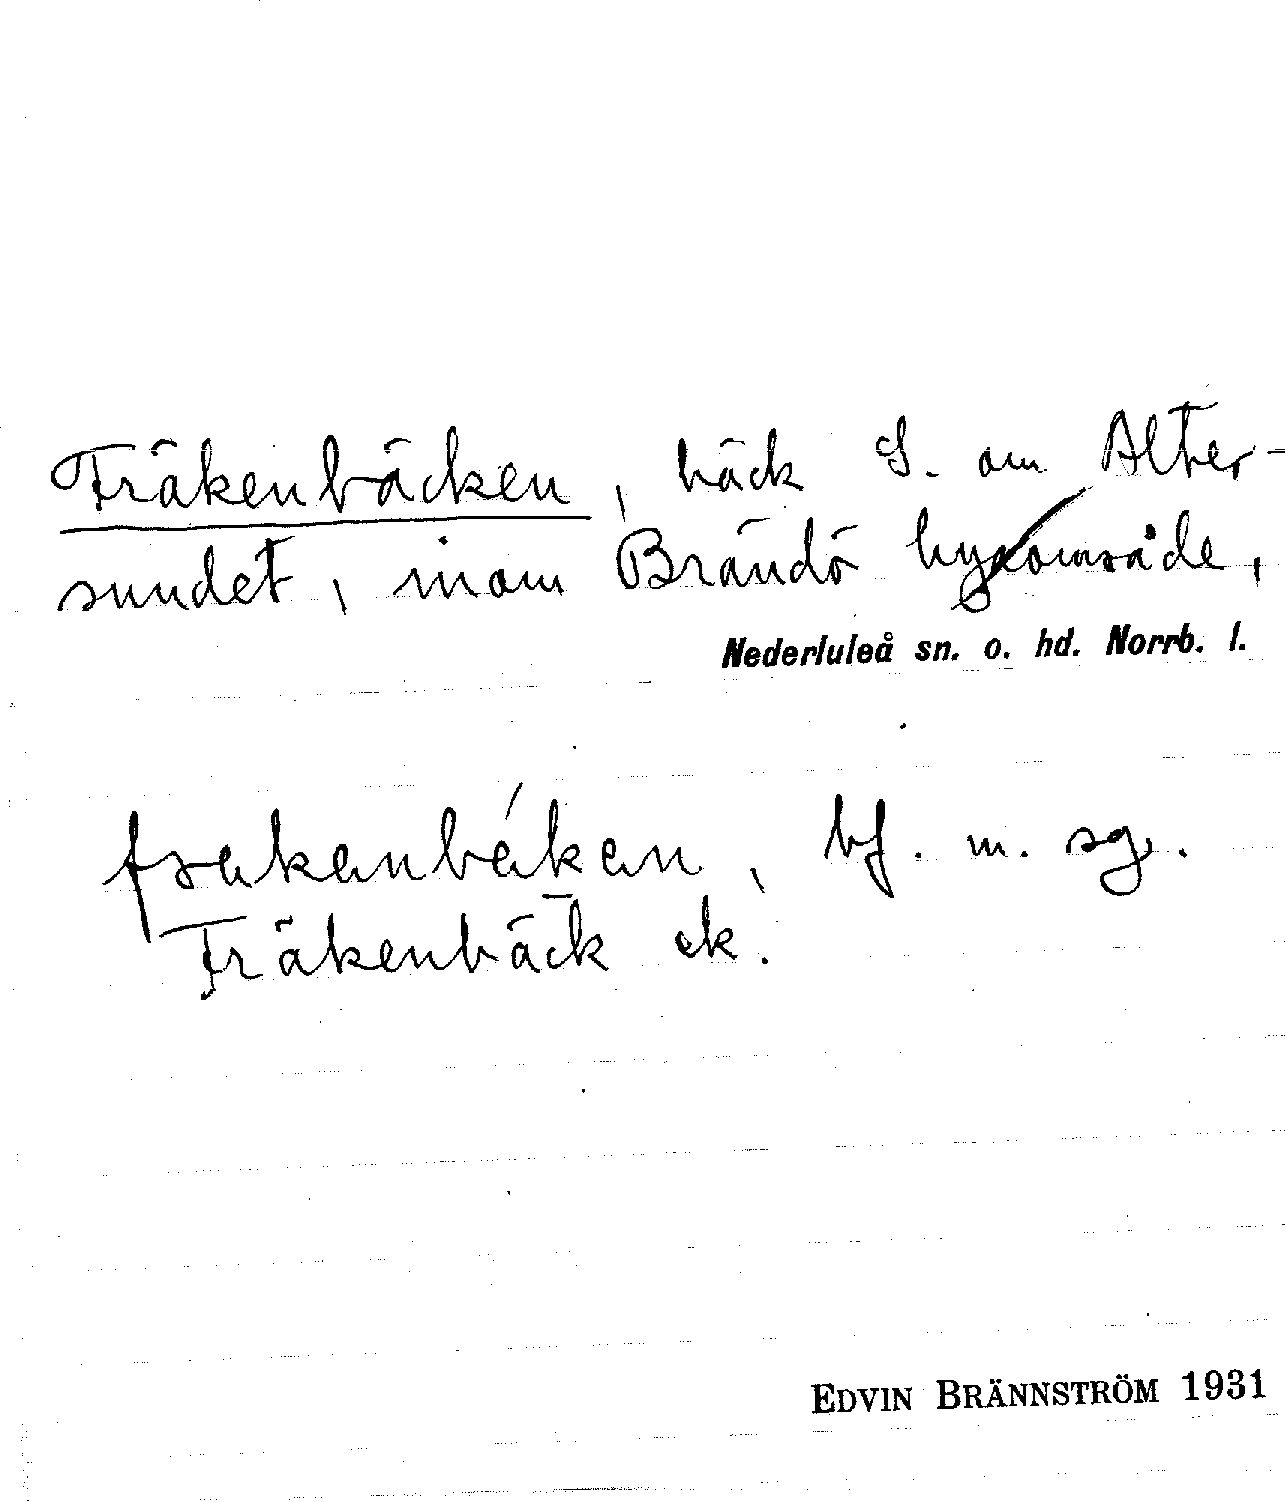 Fräkenbäcken, bäck S. om Alter-
sundet, inom Brändö byaområde,
Nederluleå sn. o. hd. Norrb. l.
frakenbäken, bf. m. sg.
Fräkenbäck ek.
EDVIN BRÄNNSTRÖM 1931